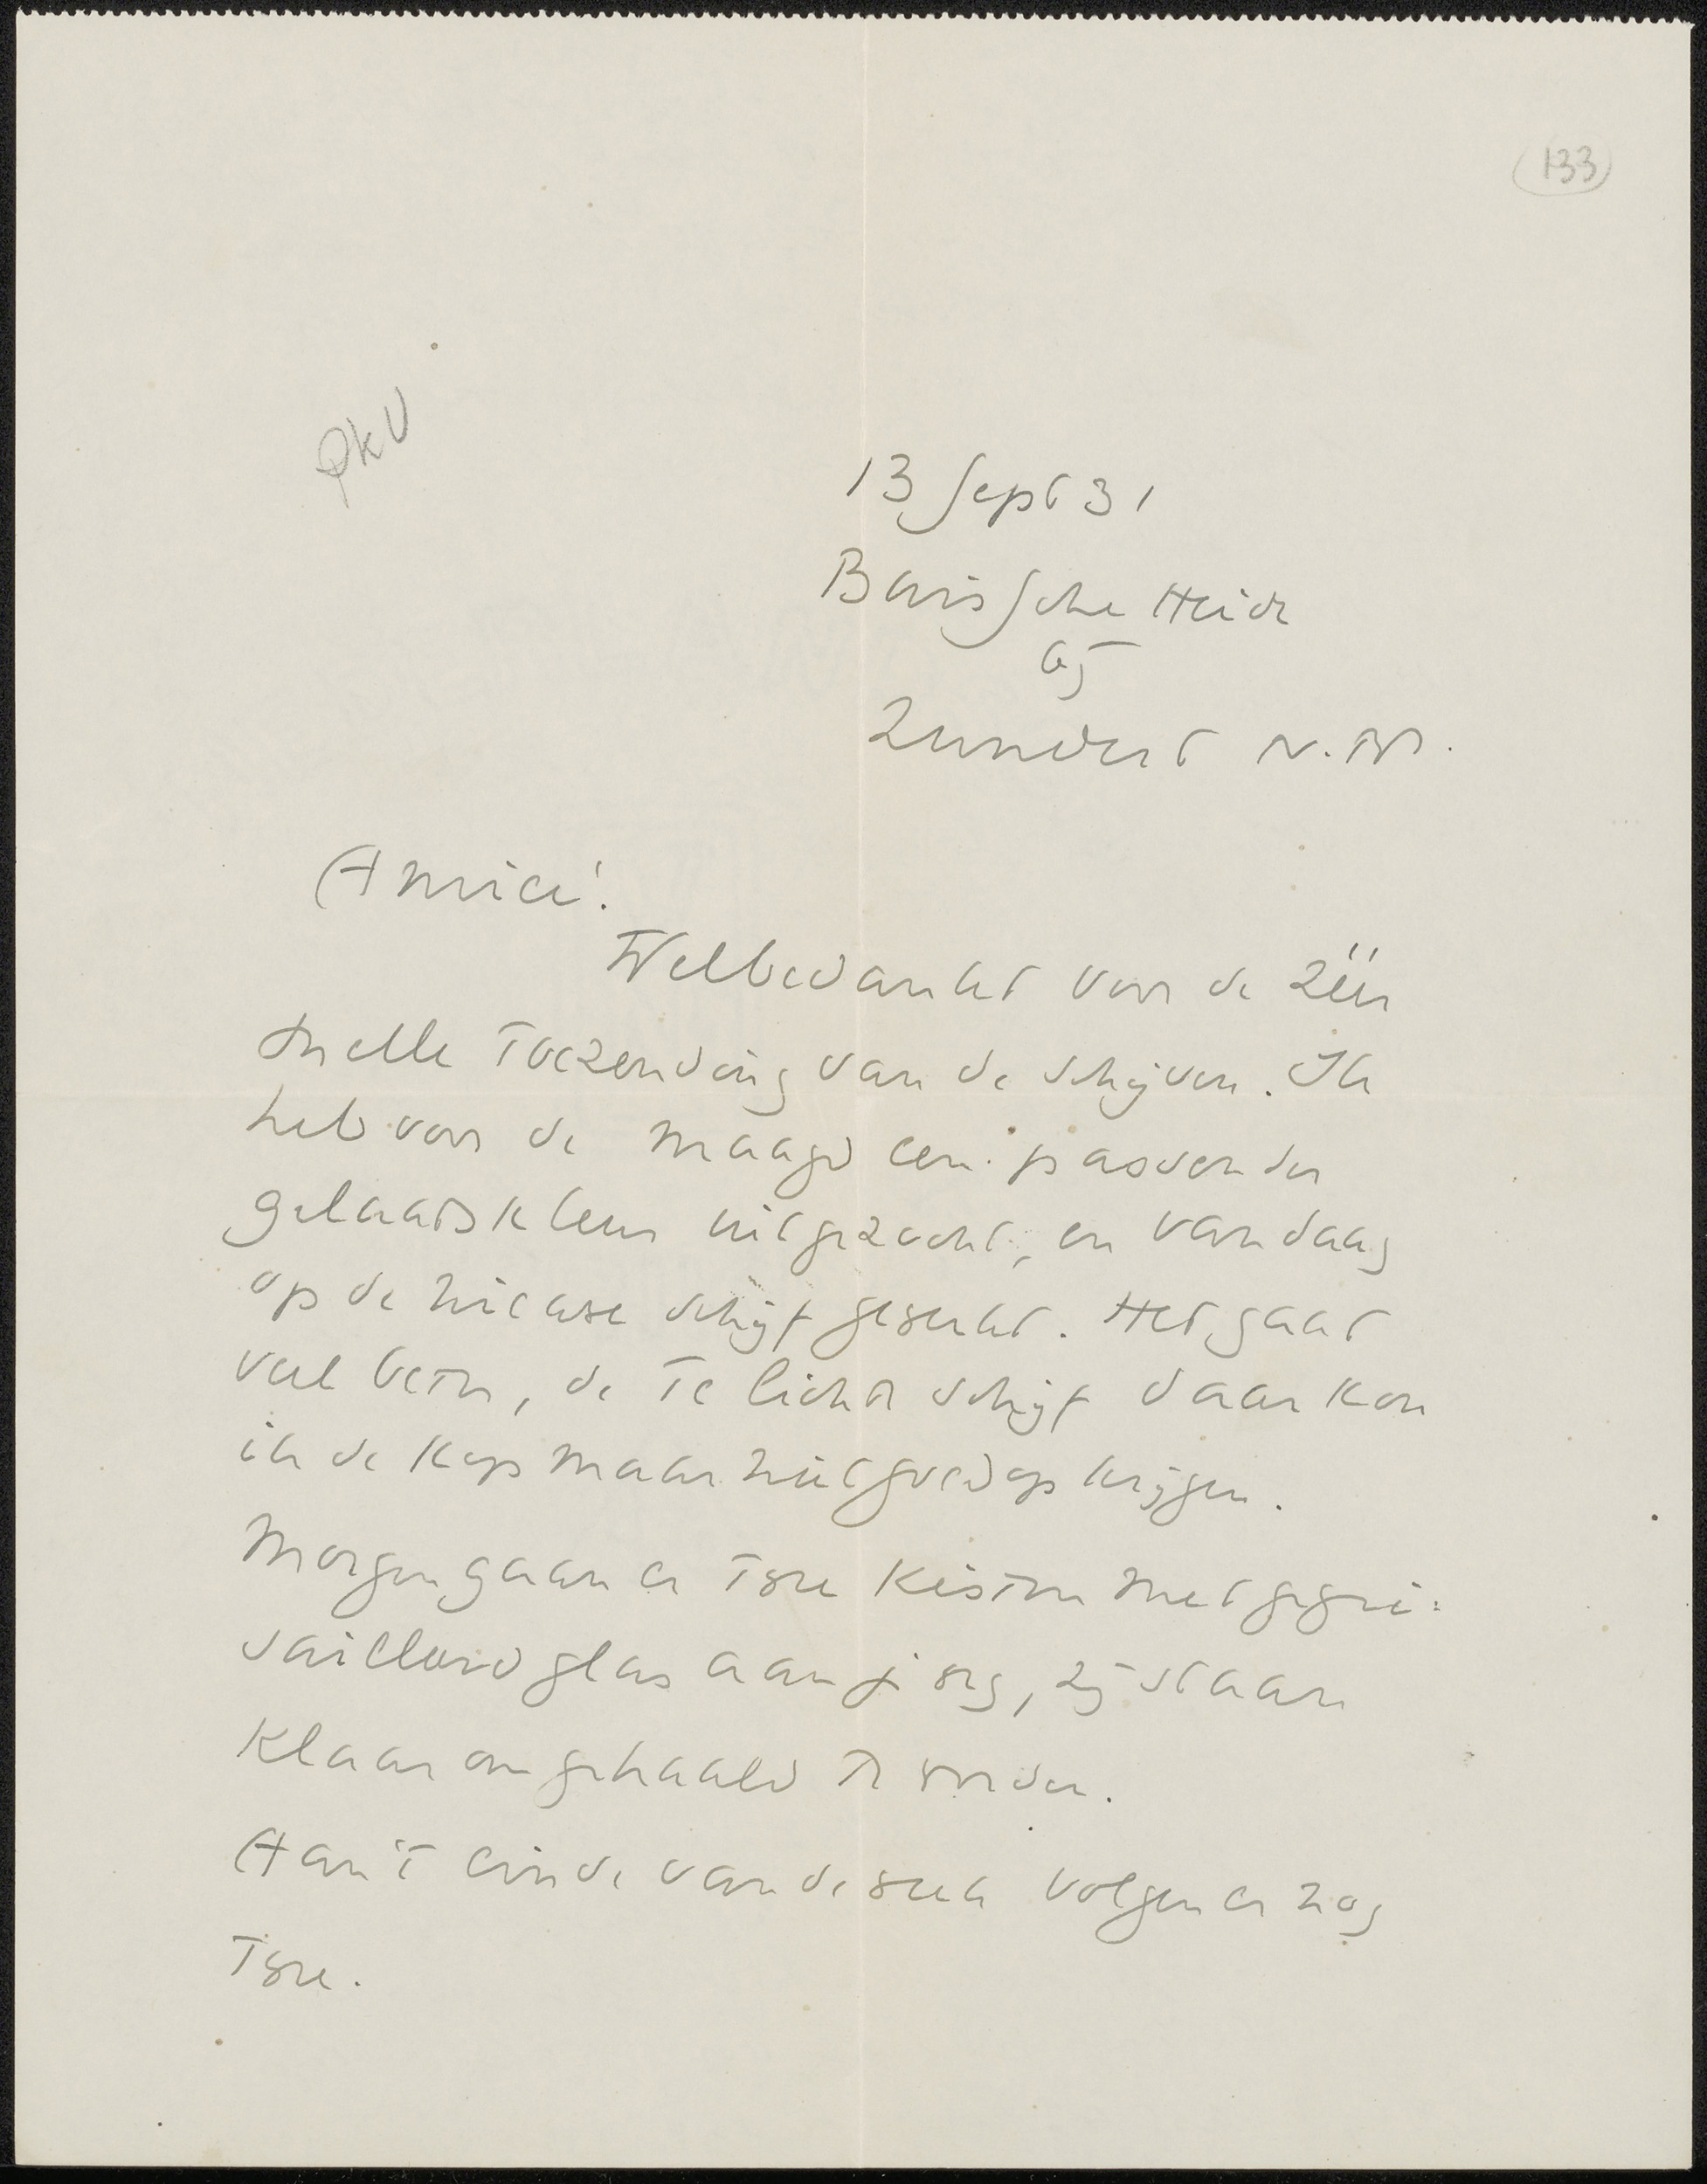 133
PKV
13 Sept 31
Buissche Heide
bij
Zundert N.B.
Amice!
Welbedankt voor de zéér
snelle toezending van de schijven. Ik
heb voor de maagd een passender
gelaatskleur uitgezocht, en vandaag
op de nieuwe schijf gewerkt. Het gaat
veel beter, de te lichte schijf daar kon
ik de kop maar niet goed op krijgen.
Morgen gaan er twee kisten met gegri-
sailleerd glas aan je weg, zij staan
klaar om gehaald te worden.
Aan't einde van de week volgen er nog
twee.